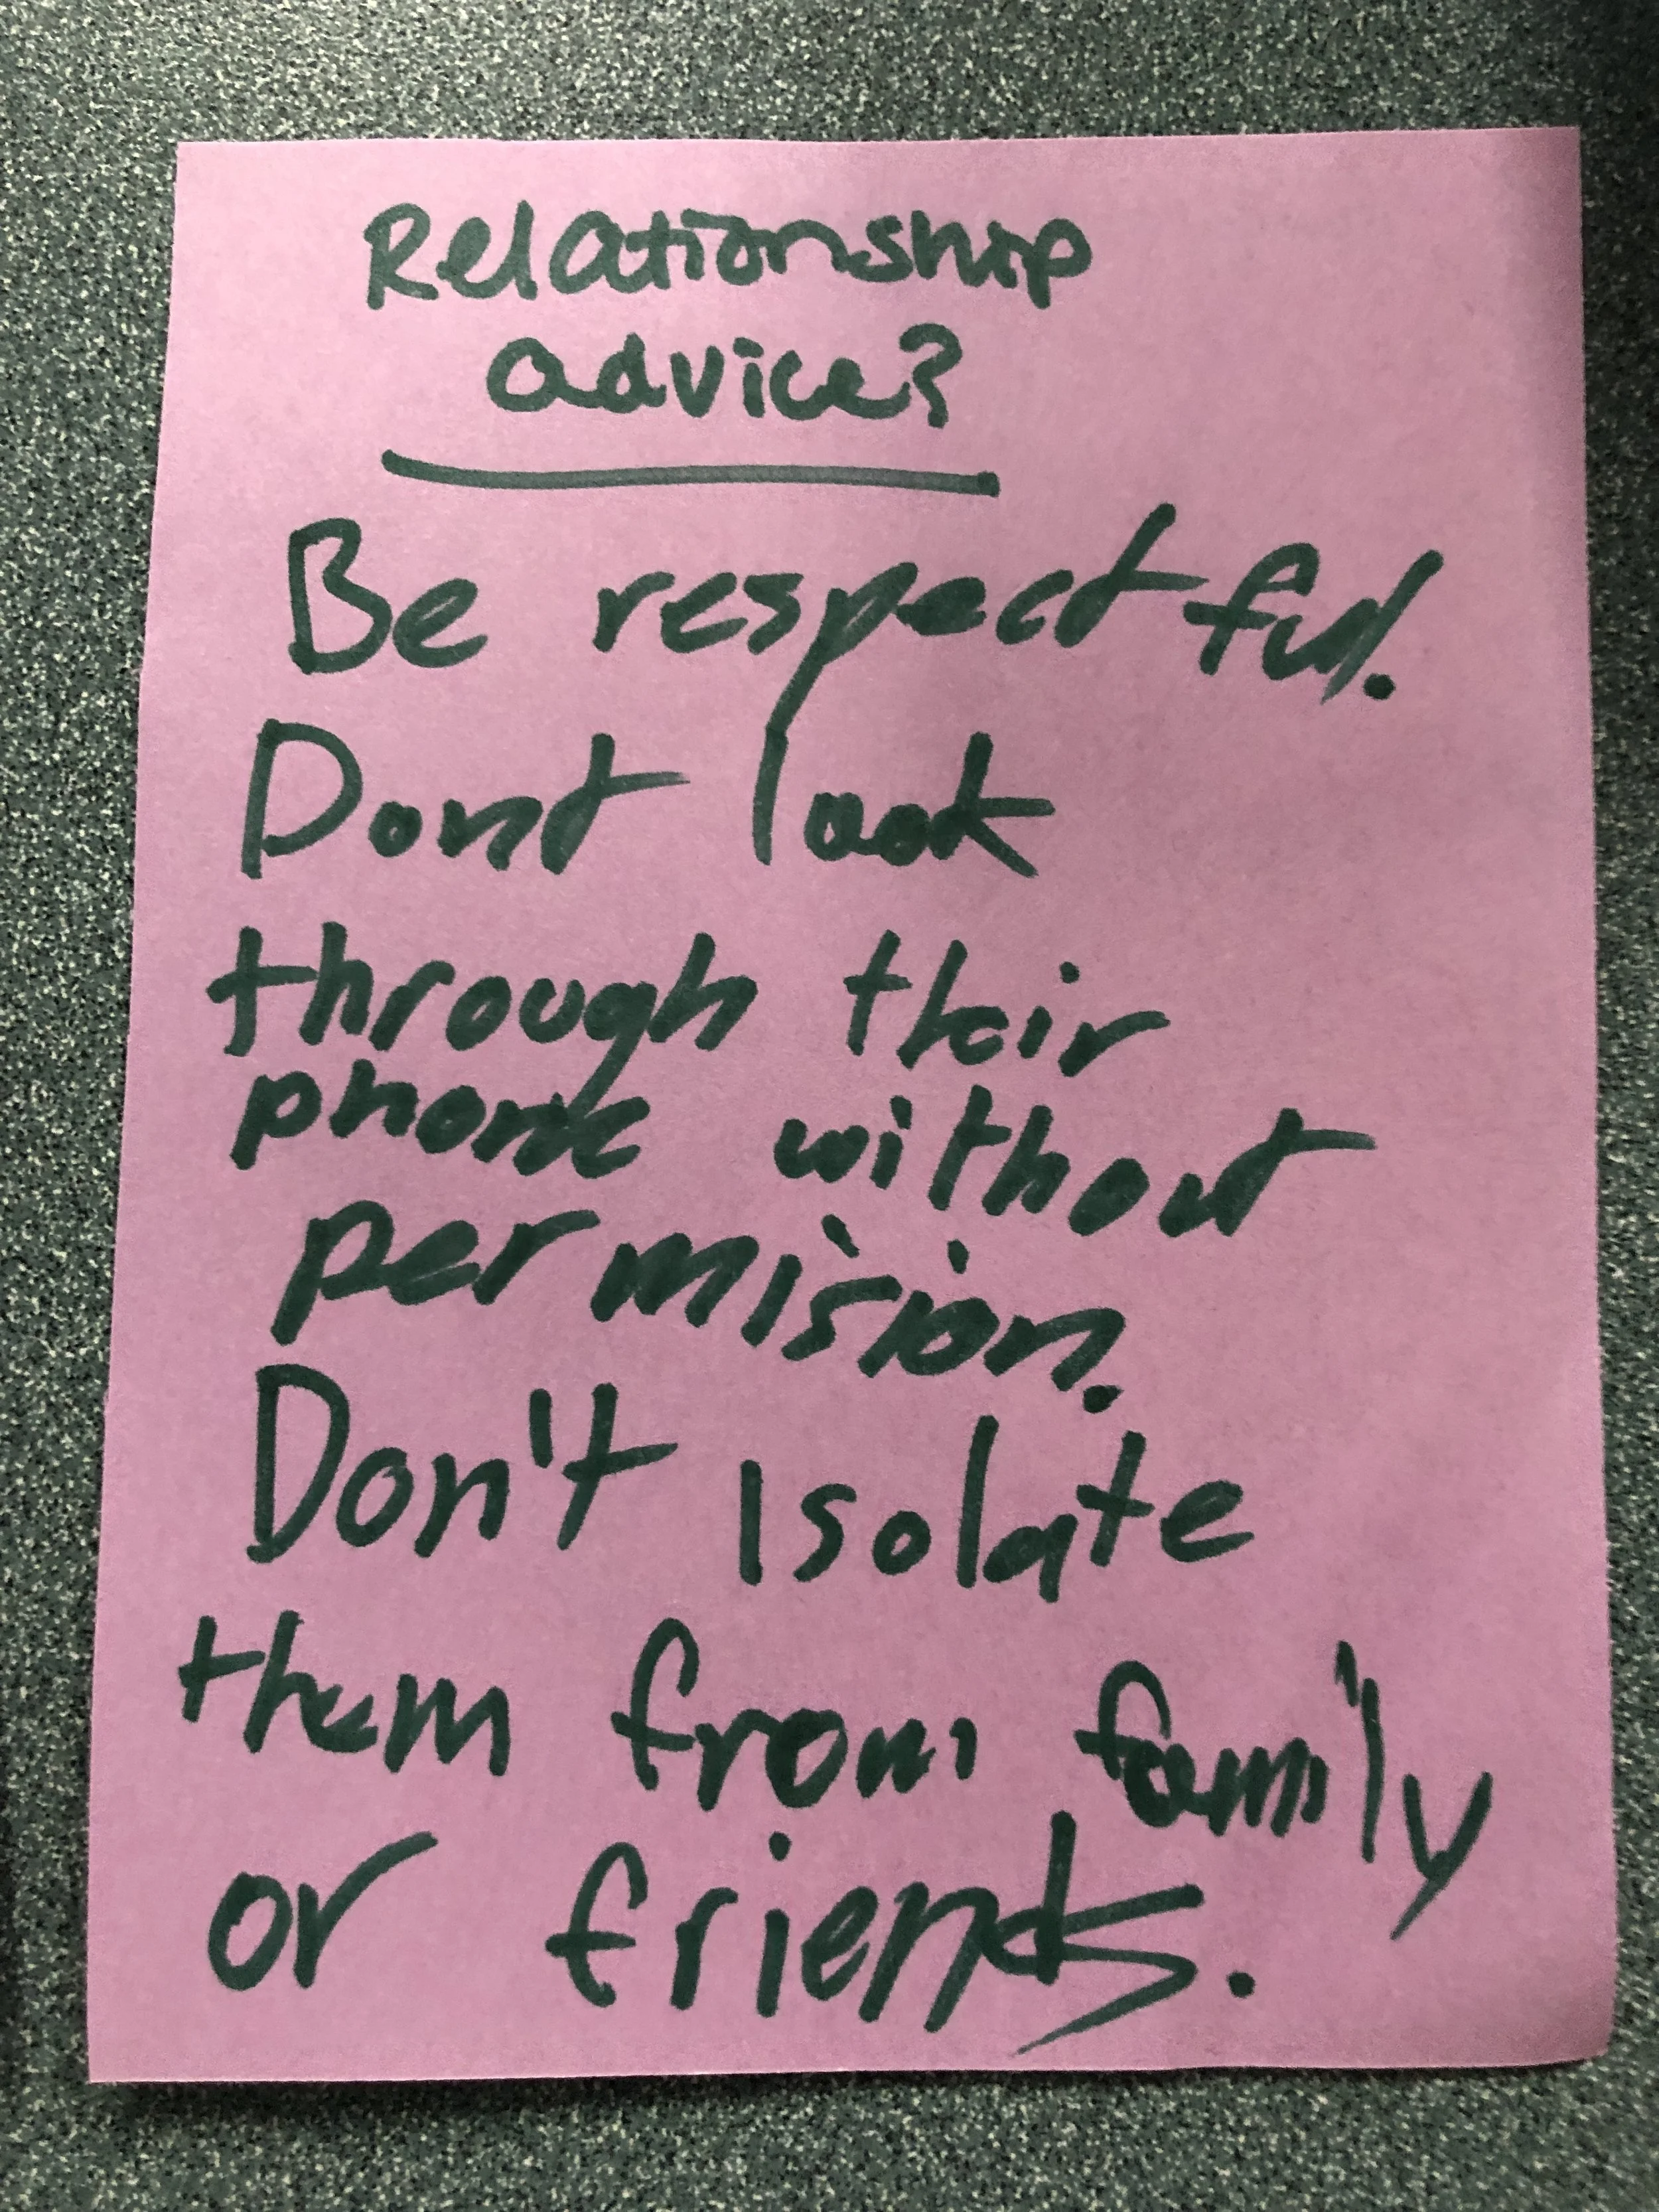 Relationship
advice?
Be respectful.
Dont look
through their
phone without
permision.
Don't isolate
them from family
or friends.